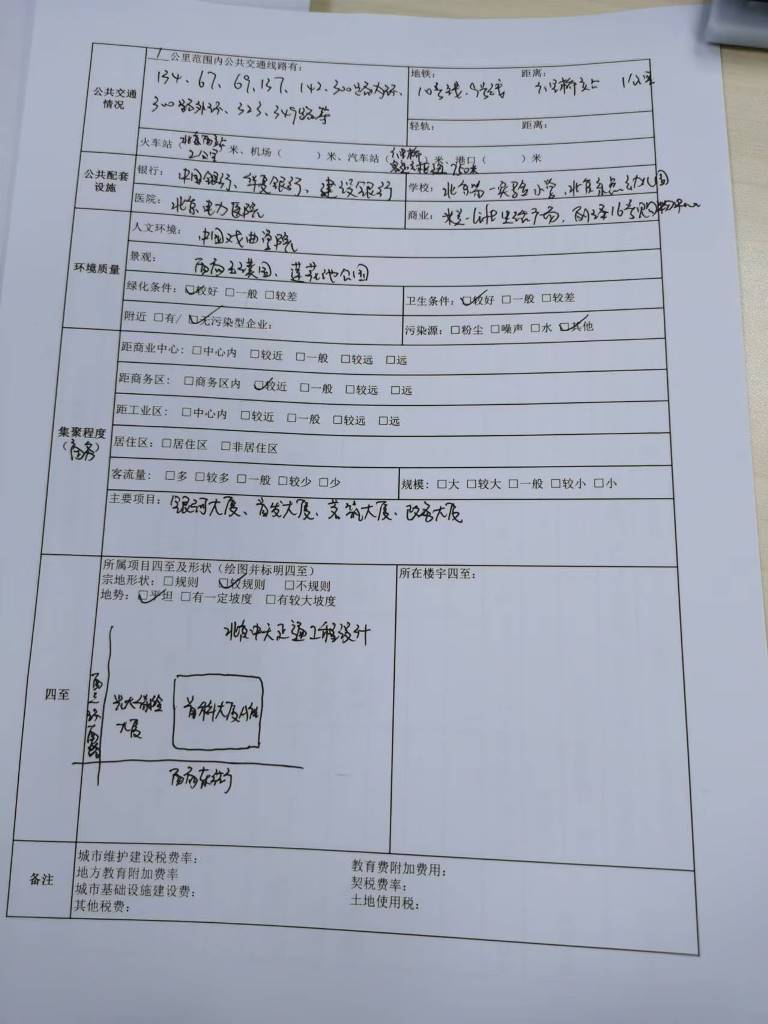 公共交通情况
1 公里范围内公共交通线路有：
134、67、69、137、142、300路内环、
300路外环、323、349路等
地铁： 距离：
10号线、9号线 六里桥站 1公里
轻轨： 距离：
火车站 北京西站 2公里 米、机场（ ）米、汽车站（六里桥 ）米、港口（ ）米
公共配套设施
银行：中国银行、华夏银行、建设银行
学校：北京第一实验小学、
医院：北京电力医院
商业：
环境质量
人文环境：中国戏曲学院
景观： 莲花池公园
绿化条件：☑较好 □一般 □较差
卫生条件：☑较好 □一般 □较差
附近 □有/ ☑无污染型企业：
污染源：□粉尘 □噪声 □水 ☑其他
集聚程度
（商务）
距商业中心：□中心内 □较近 □一般 □较远 □远
距商务区：□商务区内 ☑较近 □一般 □较远 □远
距工业区：□中心内 □较近 □一般 □较远 □远
居住区：□居住区 □非居住区
客流量：□多 □较多 □一般 □较少 □少
规模：□大 □较大 □一般 □较小 □小
主要项目：银河大厦、首发大厦、
四至
所属项目四至及形状（绘图并标明四至）
宗地形状：□规则 ☑较规则 □不规则
地势：☑平坦 □有一定坡度 □有较大坡度
所在楼宇四至：
北京中天正通工程设计
西三环南路
光大保险大厦
首科大厦A座
备注
城市维护建设税费率：
教育费附加费用：
地方教育附加费率
契税费率：
城市基础设施建设费：
土地使用税：
其他税费：